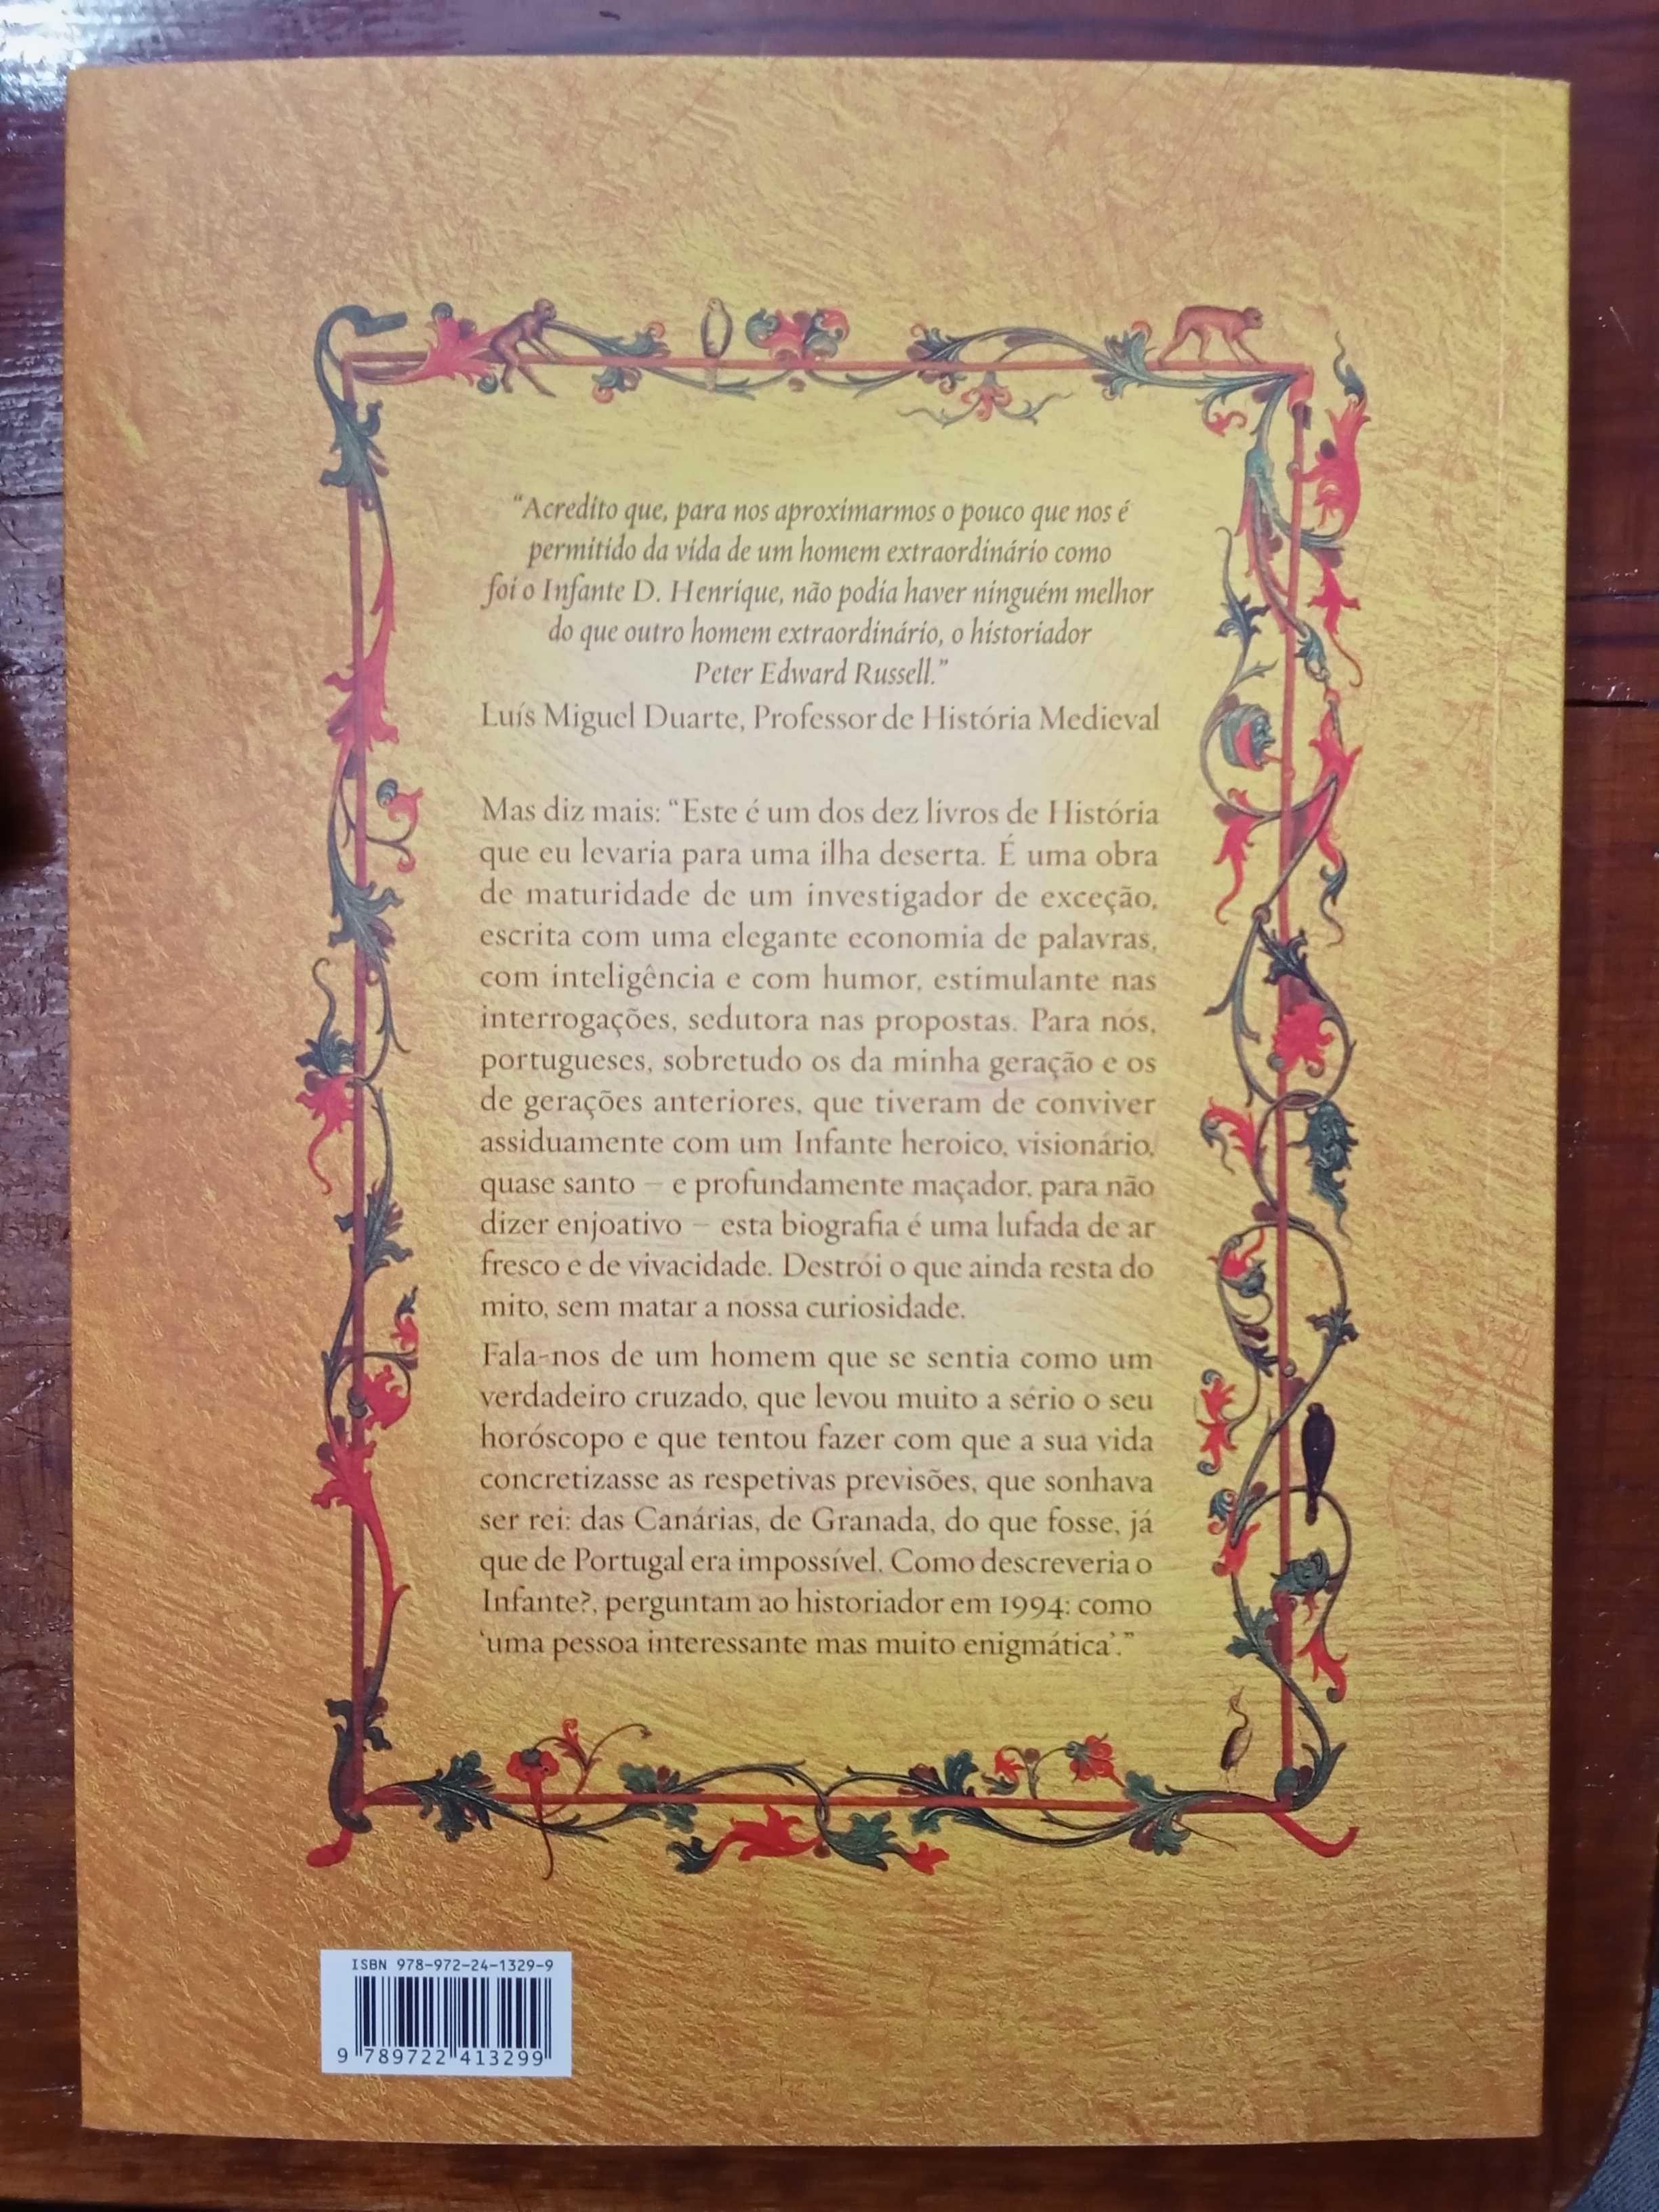 “Acredito que, para nos aproximarmos o pouco que nos é
permitido da vida de um homem extraordinário como
foi o Infante D. Henrique, não podia haver ninguém melhor
do que outro homem extraordinário, o historiador
Peter Edward Russell.”
Luís Miguel Duarte, Professor de História Medieval
Mas diz mais: “Este é um dos dez livros de História
que eu levaria para uma ilha deserta. É uma obra
de maturidade de um investigador de exceção,
escrita com uma elegante economia de palavras,
com inteligência e com humor, estimulante nas
interrogações, sedutora nas propostas. Para nós,
portugueses, sobretudo os da minha geração e os
de gerações anteriores, que tiveram de conviver
assiduamente com um Infante heroico, visionário,
quase santo – e profundamente maçador, para não
dizer enjoativo – esta biografia é uma lufada de ar
fresco e de vivacidade. Destrói o que ainda resta do
mito, sem matar a nossa curiosidade.
Fala-nos de um homem que se sentia como um
verdadeiro cruzado, que levou muito a sério o seu
horóscopo e que tentou fazer com que a sua vida
concretizasse as respetivas previsões, que sonhava
ser rei: das Canárias, de Granada, do que fosse, já
que de Portugal era impossível. Como descreveria o
Infante?, perguntam ao historiador em 1994: como
‘uma pessoa interessante mas muito enigmática’.”
ISBN 978-972-24-1329-9
9 789722 413299